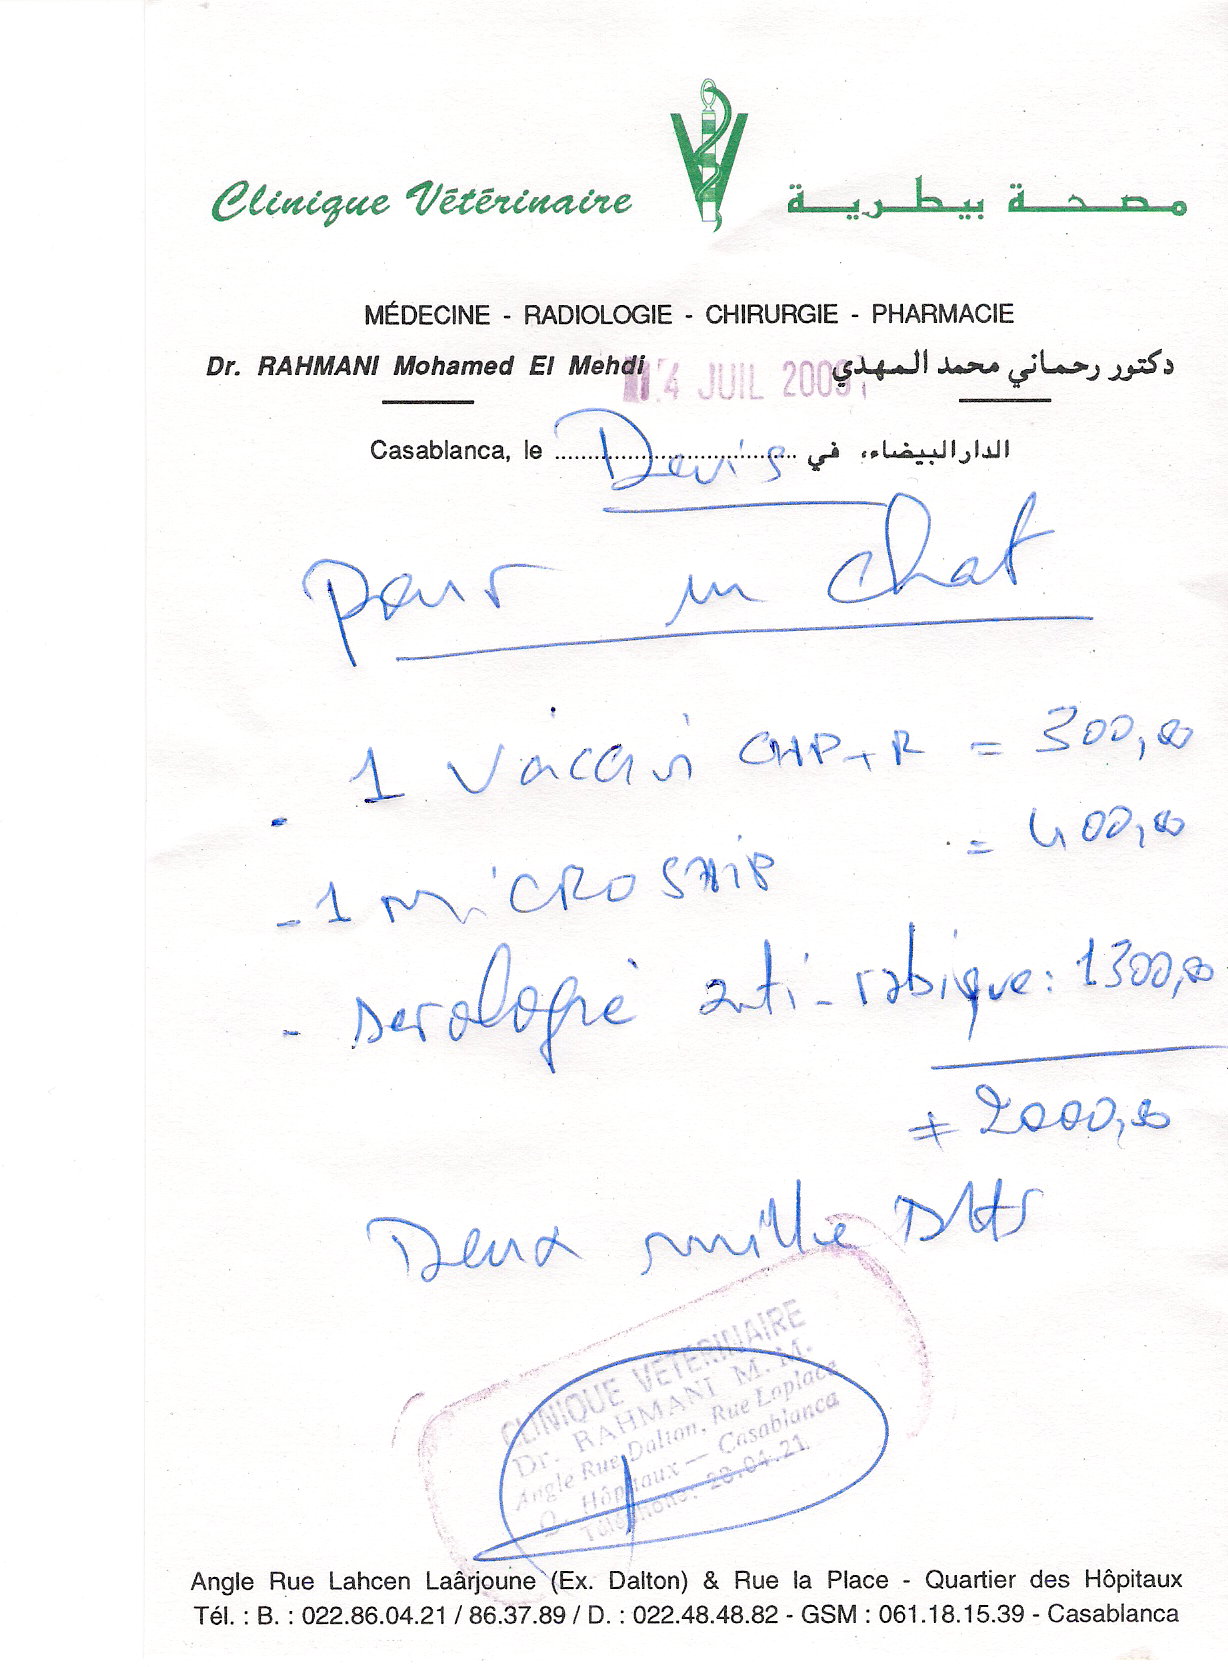 Clinique Vétérinaire مصحة بيطرية
MÉDECINE - RADIOLOGIE - CHIRURGIE - PHARMACIE
Dr. RAHMANI Mohamed El Mehdi دكتور رحماني محمد المهدي
4 JUIL 2009
Casablanca, le .......... الدار البيضاء، في
Devis
pour un chat
- 1 Vaccin CHP+R = 300,00
- 1 MICROSHIP = 400,00
- serologie anti-rabique: 1300,00
= 2000,00
Deux mille Dhs
CLINIQUE VETERINAIRE
Dr. RAHMANI M. M.
Angle Rue Dalton, Rue Laplace
Q. Hôpitaux — Casablanca
Téléphone: 28.04.21
Angle Rue Lahcen Laârjoune (Ex. Dalton) & Rue la Place - Quartier des Hôpitaux
Tél. : B. : 022.86.04.21 / 86.37.89 / D. : 022.48.48.82 - GSM : 061.18.15.39 - Casablanca